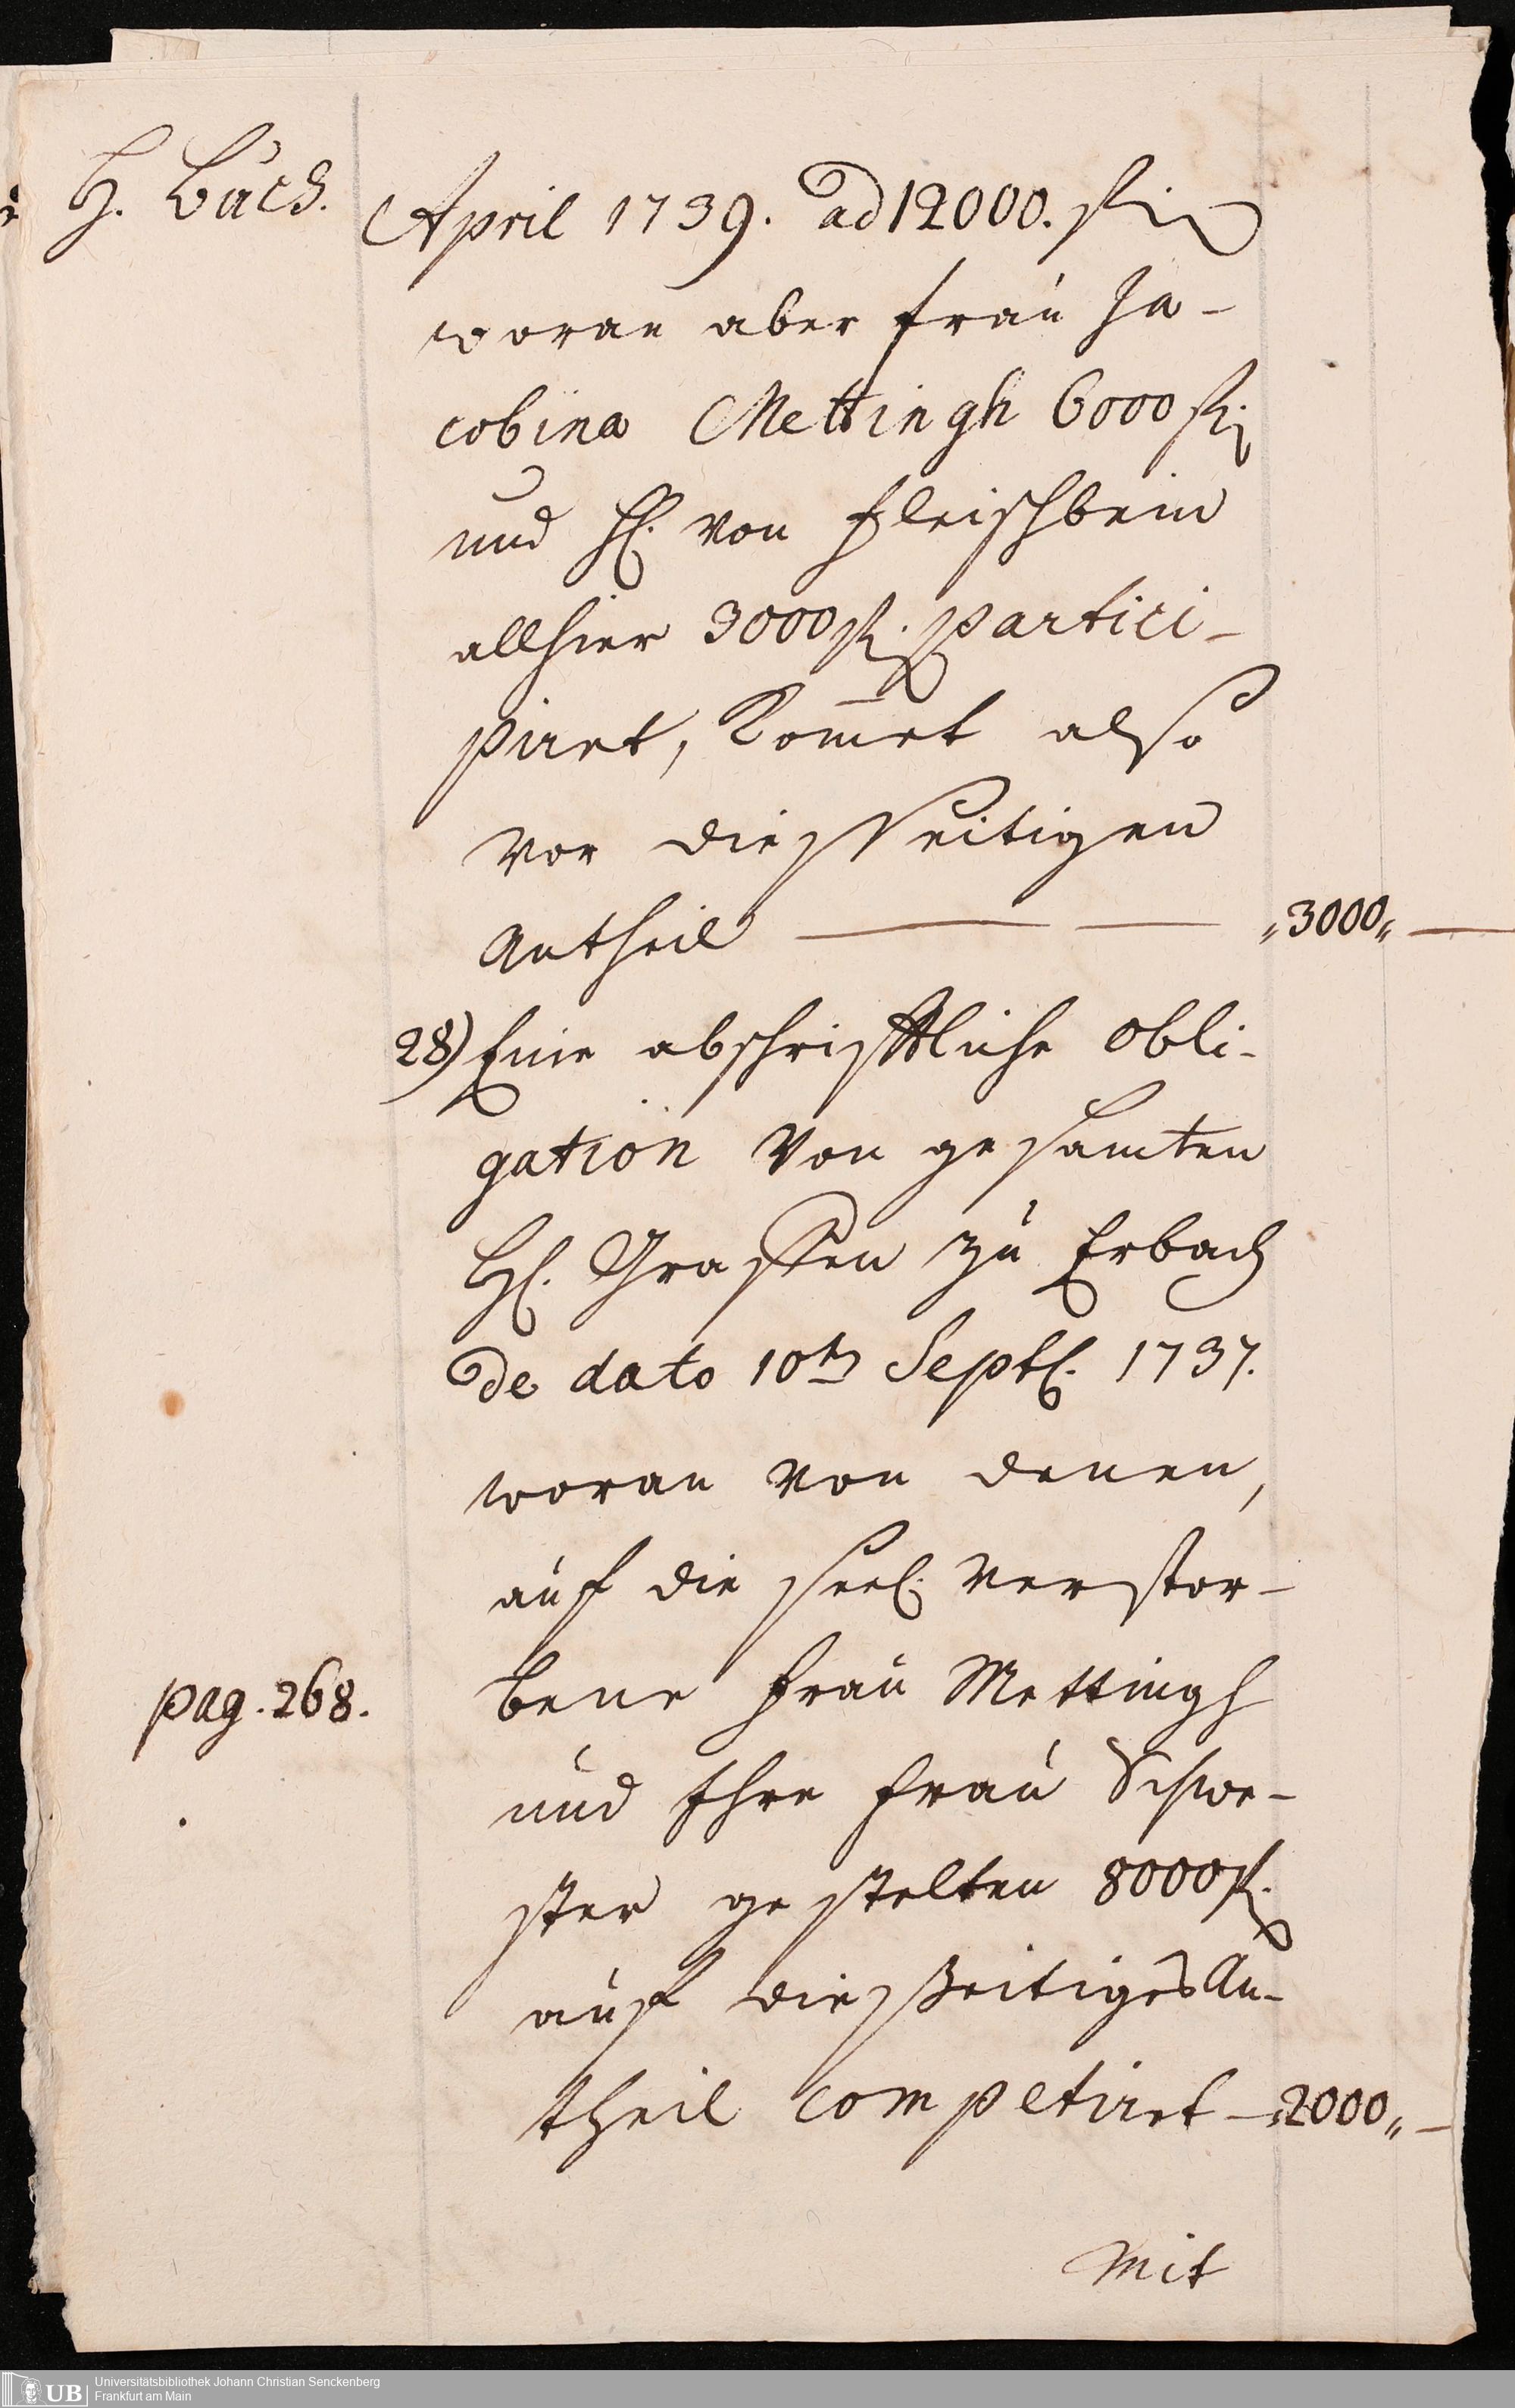 H. Buch.
April 1739. ad 12000. fl.
woran aber Frau Ja-
cobina Mettingh 6000 fl.
und H. von Fleischbein
allhier 3000 fl. partici-
piret, kom̄et also
vor diesseitigen
Antheil — — „3000„ —
28) Eine abschrifftliche Obli-
gation von gesamten
H. Graffen zu Erbach
de dato 10ten Sept. 1737.
woran von denen,
auf die seel. verstor-
pag. 268.
bene Frau Mettingh
und Ihre Frau Schwe-
ster gestelten 8000 fl.
auf dießeitiges An-
theil competiret — „2000„ —
Mit
UB
Universitätsbibliothek Johann Christian Senckenberg
Frankfurt am Main